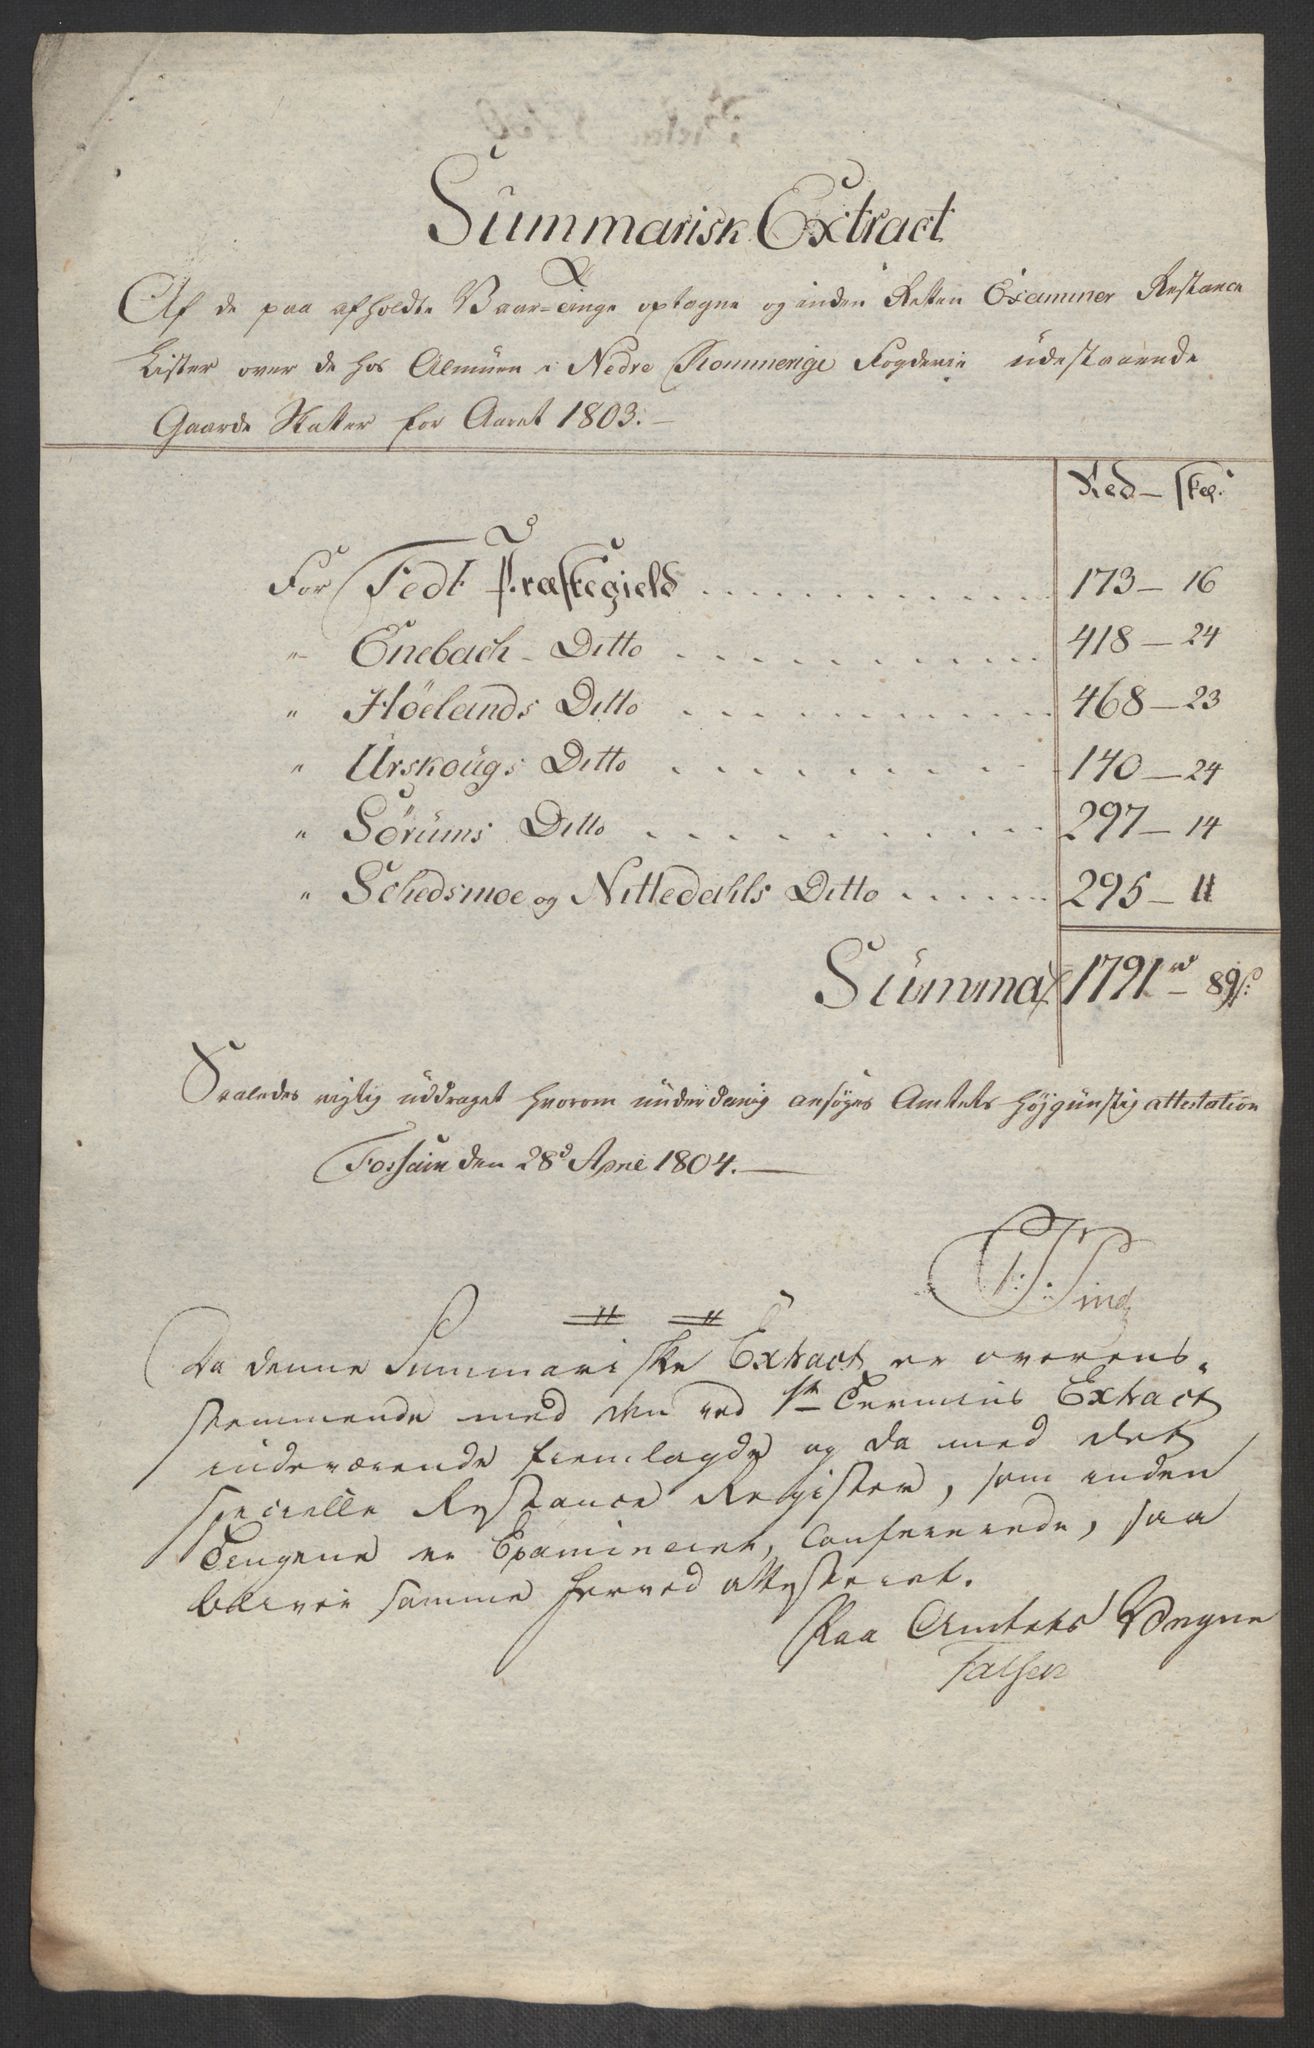 Summarisk Extract
Af de paa afholdte Vaar-Tinge optagne og inden Retten Examiner Restance
Lister over de hos Almuen i Nedre Rommerige Fogderie udestaaende
Gaarde Skatter for Aaret 1803.—
Rd — sk:
For Fedt Præstegield . . . . . . . . . . . . 173 — 16
" Enebach - Ditto . . . . . . . . . . 418 — 24
" Høelands Ditto . . . . . . . . . . 468 — 23
" Urskougs Ditto . . . . . . . . . 140 — 24
" Sørums Ditto . . . . . . . . . . 297 — 14
" Schedsmoe og Nittedahls Ditto . . . . . . 295 — 11
Summa 1791 rd — 89 s:
Saaledes rigtig uddraget hvorom underdanig ansøges Amtets højgunstig attestation
Fossum den 28d April 1804.—
Da denne Summariske Extract er overens-
stemmende med den ved 1ste Termins Extract
indeværende fremlagde og da med det
specielle Restance Register, som inden
Tingene er Examineret, Confererede, saa
bliver samme herved attesteret.
Paa Amtets Vegne
Falsen